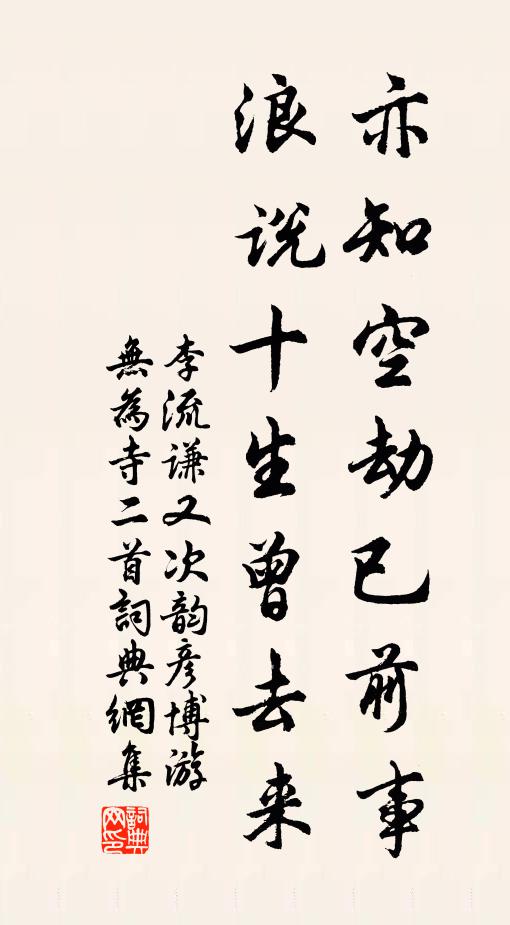 亦知空劫已前事
浪説十生曾去来
李流谦又次韵彦博游
無為寺二首詞典網集
詞典
网印